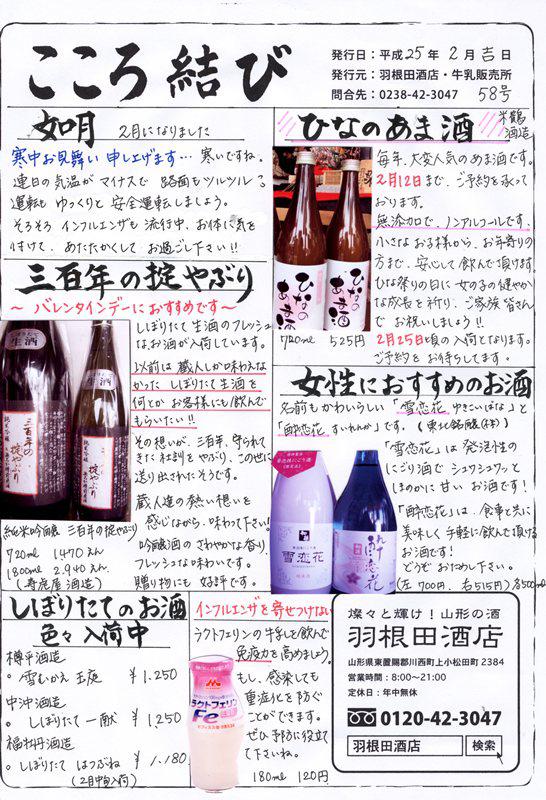 こころ結び
発行日：平成25年 2月 吉日
発行元：羽根田酒店・牛乳販売所
問合先：0238-42-3047 58号
如月 2月になりました
寒中お見舞い申し上げます… 寒いですね。
連日の気温がマイナスで 路面もツルツル。
運転も ゆっくりと 安全運転しましょう。
そろそろ インフルエンザも 流行中、お体に気を
付けて、あたたかくして お過ごし下さい!!
三百年の掟やぶり
～バレンタインデーにおすすめです～
しぼりたて 生酒の フレッシュ
なお酒が入荷しています。
以前は 蔵人しか味わえな
かった しぼりたて生酒を
何とか お客様にも飲んで
もらいたい!!
その想いが、三百年、守られて
きた社訓をやぶり、この世に
送り出されたそうです。
蔵人達の熱い想いを
感じながら、味わって下さい!
吟醸酒の さわやかな香り、
フレッシュな味わいです。
贈り物にも 好評です。
生酒
三百年の掟やぶり
純米吟醸 三百年の掟やぶり
720ml 1470えん
1800ml 2,940えん
(寿虎屋酒造)
ひなのあま酒
米鶴酒造
毎年、大変人気の あま酒です。
2月12日まで、ご予約を承って
おります。
無添加で、ノンアルコールです、
小さなお子様から、お年寄りの
方まで、安心して飲んで頂けます。
ひな祭りの日に女の子の健やか
な成長を祈り、ご家族皆さん
で お祝いしましょう!!
2月25日頃の入荷となります。
ご予約を お待ちしてます。
ひなのあま酒
ひなのあま酒
720ml 525円
女性におすすめのお酒
名前もかわいらしい「雪恋花 ゆきこいばな」と
「酔恋花 すいれんか」です。(東北銘醸(株))
「雪恋花」は 発泡性の
にごり酒で シュワシュワッと
ほのかに甘いお酒です!
「酔恋花」は、食事と共に
美味しく 手軽に飲んで頂ける
お酒です!
どうぞ お試し下さい。
(左 700円、右515円)各500ml
雪恋花
酔恋花
しぼりたてのお酒
色々入荷中
樽平酒造
。雪むかえ 玉庭 ¥1,250
中沖酒造
。しぼりたて 一献 ¥1,250
福牡丹酒造
。しぼりたて はつね ¥1,180
(2月中旬入荷)
インフルエンザを寄せつけない
ラクトフェリンの牛乳を飲んで
免疫力を高めましょう。
もし、感染しても
重症化を防ぐ
ことができます。
ぜひ 予防に役立
て下さいね。
180ml 120円
ラクトフェリン
Fe
燦々と輝け！山形の酒
羽根田酒店
山形県東置賜郡川西町上小松田町2384
営業時間：8:00～21:00
定休日：年中無休
0120-42-3047
羽根田酒店 検索